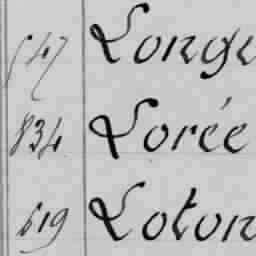 547 Longu
834 Lorée
619 Loton